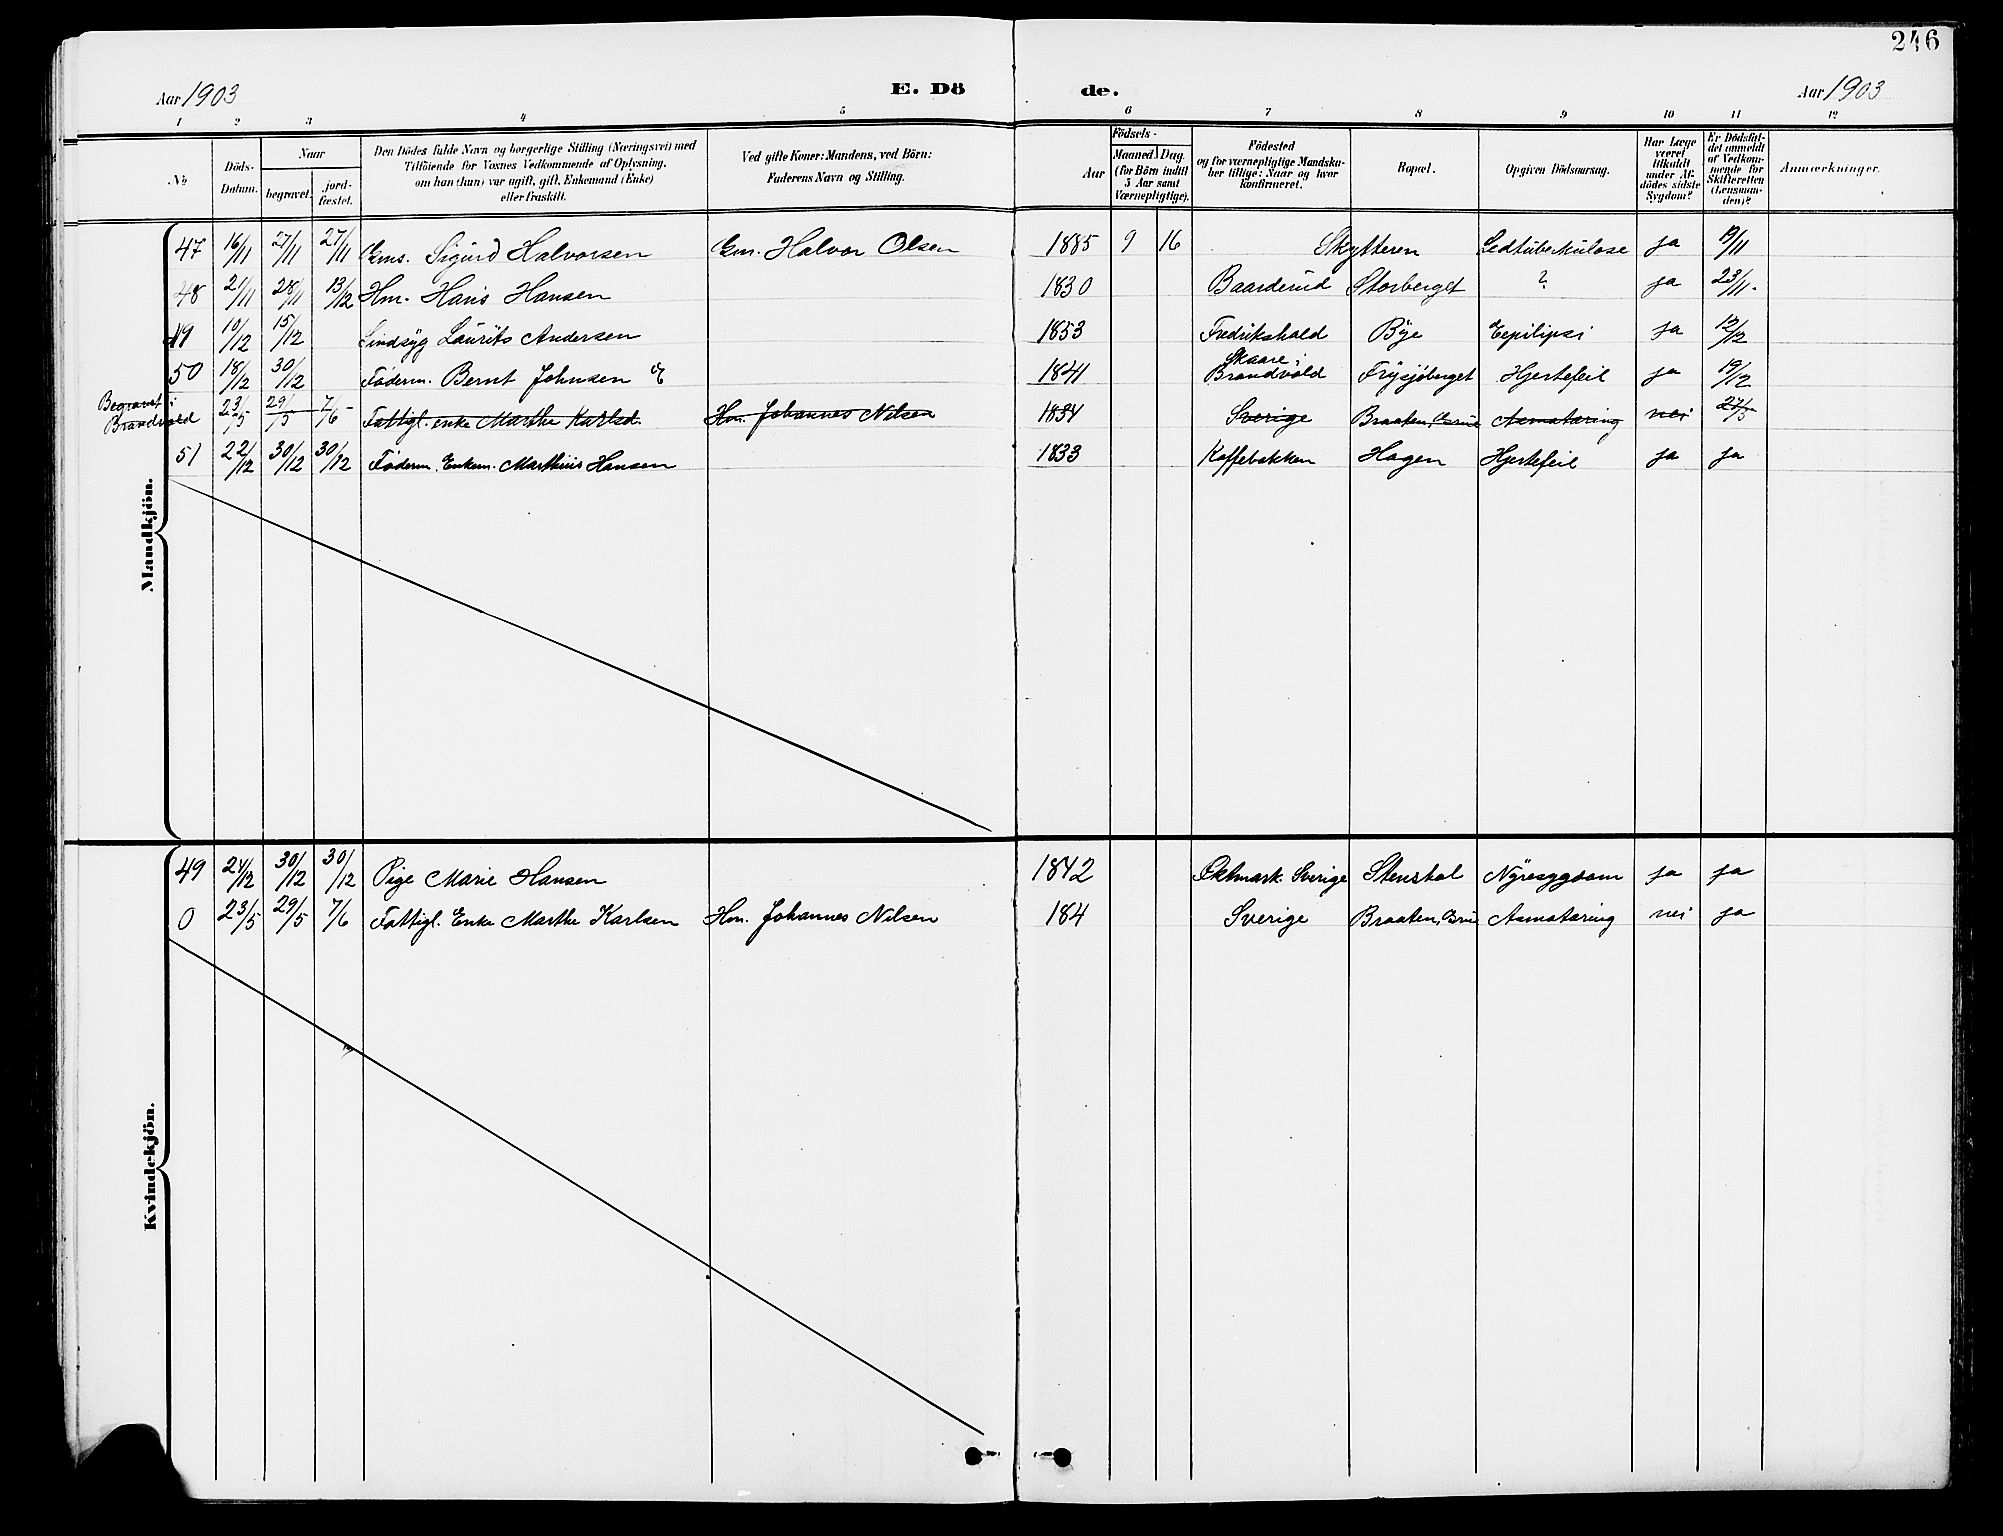 246
Aar 1903 E. Dö de. Aar 1903
1 2 3 4 5 6 7 8 9 10 11 12
№ Döds-Datum. Naar begravet. jord-fæstet. Den Dödes fulde Navn og borgerlige Stilling (Næringsvei) med Tilföiende for Voxnes Vedkommende af Oplysning, om han (hun) var ugift, gift, Enkemand (Enke) eller fraskilt. Ved gifte Koner: Mandens, ved Börn: Faderens Navn og Stilling. Aar Födsels- Maaned Dag. (for Börn indtil 5 Aar samt Værnepligtige). Födested og for værnepligtige Mandskaber tillige: Naar og hvor konfirmeret. Bopæl. Opgiven Dödsaarsag. Har Læge været tilkaldt under Afdödes sidste Sygdom? Er Dödsfaldet anmeldt af Vedkommende for Skifteretten (Lensmanden)? Anmærkninger.
Mandkjön.
47 16/11 27/11 27/11 Gms. Sigurd Halvorsen Gm. Halvor Olsen 1885 9 16 Skytteren Ledtuberkulose ja 19/11
48 21/11 28/11 13/12 Hm. Hans Hansen 1830 Baarderud Storberget ? ja 23/11.
49 10/12 15/12 Sindsyg Laurits Andersen 1853 Fredrikshald Bÿe Eepilipsi ja 12/12
50 18/12 30/12 Föderm. Bernt Johnsen 1841 Skaare i Brandvold Frysjöberget Hjertefeil ja 19/12
Begravet i Brandvold 23/5 29/5 7/6 Fattigl. enke Marthe Karlsd. Hm. Johannes Nilsen 1834 Sverige Braaten, Grue Asmatæring nei 27/5
51 22/12 30/12 30/12 Föderm. Enkem. Marthius Hansen 1833 Kaffebakken Hagen Hjertefeil ja ja
Kvindekjön.
49 24/12 30/12 30/12 Pige Marie Hansen 1842 Ektmark. Sverige Stenstal Nÿresygdom ja ja
0 23/5 29/5 7/6 Fattigl. Enke Marthe Karlsen Hm. Johannes Nilsen 184 Sverige Braaten, Grue Asmatæring nei ja